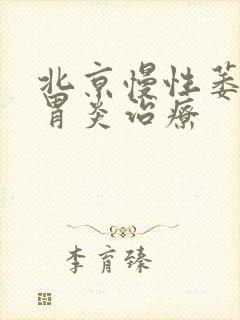 北京慢性萎
胃炎治疗
李育臻